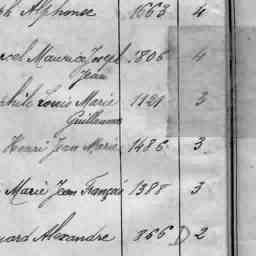 ph Alphonse 1663 4
rcel Maurice Joseph 1806 4
Jean
phile Louis Marie 1121 3
Guillaume
Henri Jean Marie 1486 3
Marie Jean François 1388 3
uard Alexandre 866 2